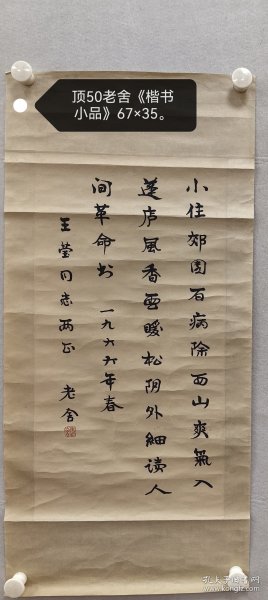 顶50老舍《楷书
小品》67×35。
小住郊园百病除西山爽氣入
蓬庐風香雪暖松阴外細读人
间革命书 一九六六年春
王莹同志两正
老舍
孔夫子旧书网